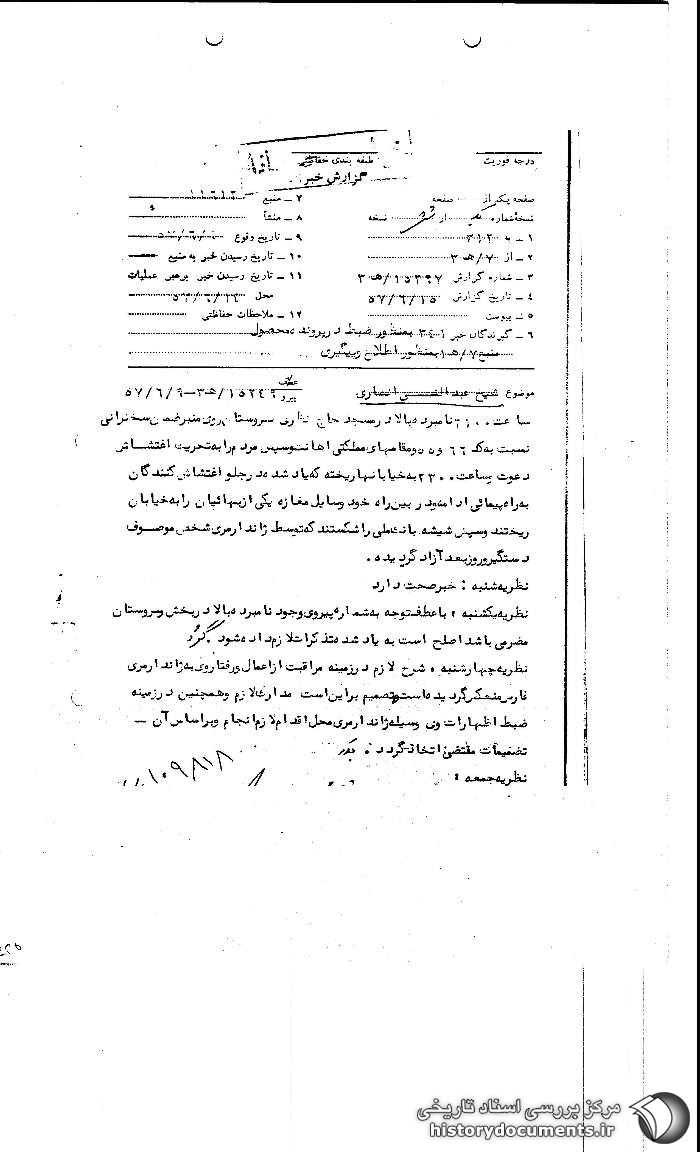 درجه فوریت
طبقه بندی حفاظتی
گزارش خبر
صفحه یک از صفحه
نسخه شماره از نسخه
۱ ـ به ۳۱۲
۲ ـ از ۷/هـ ۳
۳ ـ شماره گزارش ۱۵۳۹۷/هـ ۳
۴ ـ تاریخ گزارش ۵۷/۶/۱۵
۵ ـ پیوست
۶ ـ گیرندگان خبر ۳٤۱ بمنظور ضبط در پرونده محصول
منبع ۷/هـ ۱ بمنظور اطلاع و پیگیری
۷ ـ منبع
۸ ـ منشأ
۹ ـ تاریخ وقوع
۱۰ ـ تاریخ رسیدن خبر به منبع
۱۱ ـ تاریخ رسیدن خبر برهبر عملیات
محل
۱۲ ـ ملاحظات حفاظتی
موضوع شیخ عبدالنبی انصاری
عطف
پیرو ۱۵۲٤۹/هـ ۳ـ۵۷/۶/۹
ساعت ۲۱۰۰ نامبرده بالا در مسجد حاج سروستان روی منبر ضمن سخنرانی
نسبت به و مقامهای مملکتی اهانت و سپس مردم را به تحریک اغتشاش
دعوت و ساعت ۲۳۰۰ به خیابانها ریخته که یاد شده در جلو اغتشاش کنندگان
به راه پیمائی ادامه و در بین راه خود وسایل مغازه یکی از بهائیان را به خیابان
ریختند و سپس شیشه بانک ملی را شکستند که توسط ژاندارمری شخص موصوف
دستگیر و روز بعد آزاد گردیده .
نظریه شنبه : خبر صحت دارد
نظریه یکشنبه ، با عطف توجه به شماره پیروی وجود نامبرده بالا در بخش سروستان
مضر می باشد اصلح است به یاد شده تذکرات لازم داده شود .
نظریه چهارشنبه ، شرح لازم در زمینه مراقبت از اعمال و رفتار وی به ژاندارمری
فارس منعکس گردیده است و تصمیم بر این است مدارک لازم و همچنین در زمینه
ضبط اظهارات وی وسیله ژاندارمری محل اقدام لازم انجام و بر اساس آن ـ
تصمیمات مقتضی اتخاذ گردد .
نظریه جمعه :
۱۰۹۸۱۸
مرکز بررسی اسناد تاریخی
historydocuments.ir